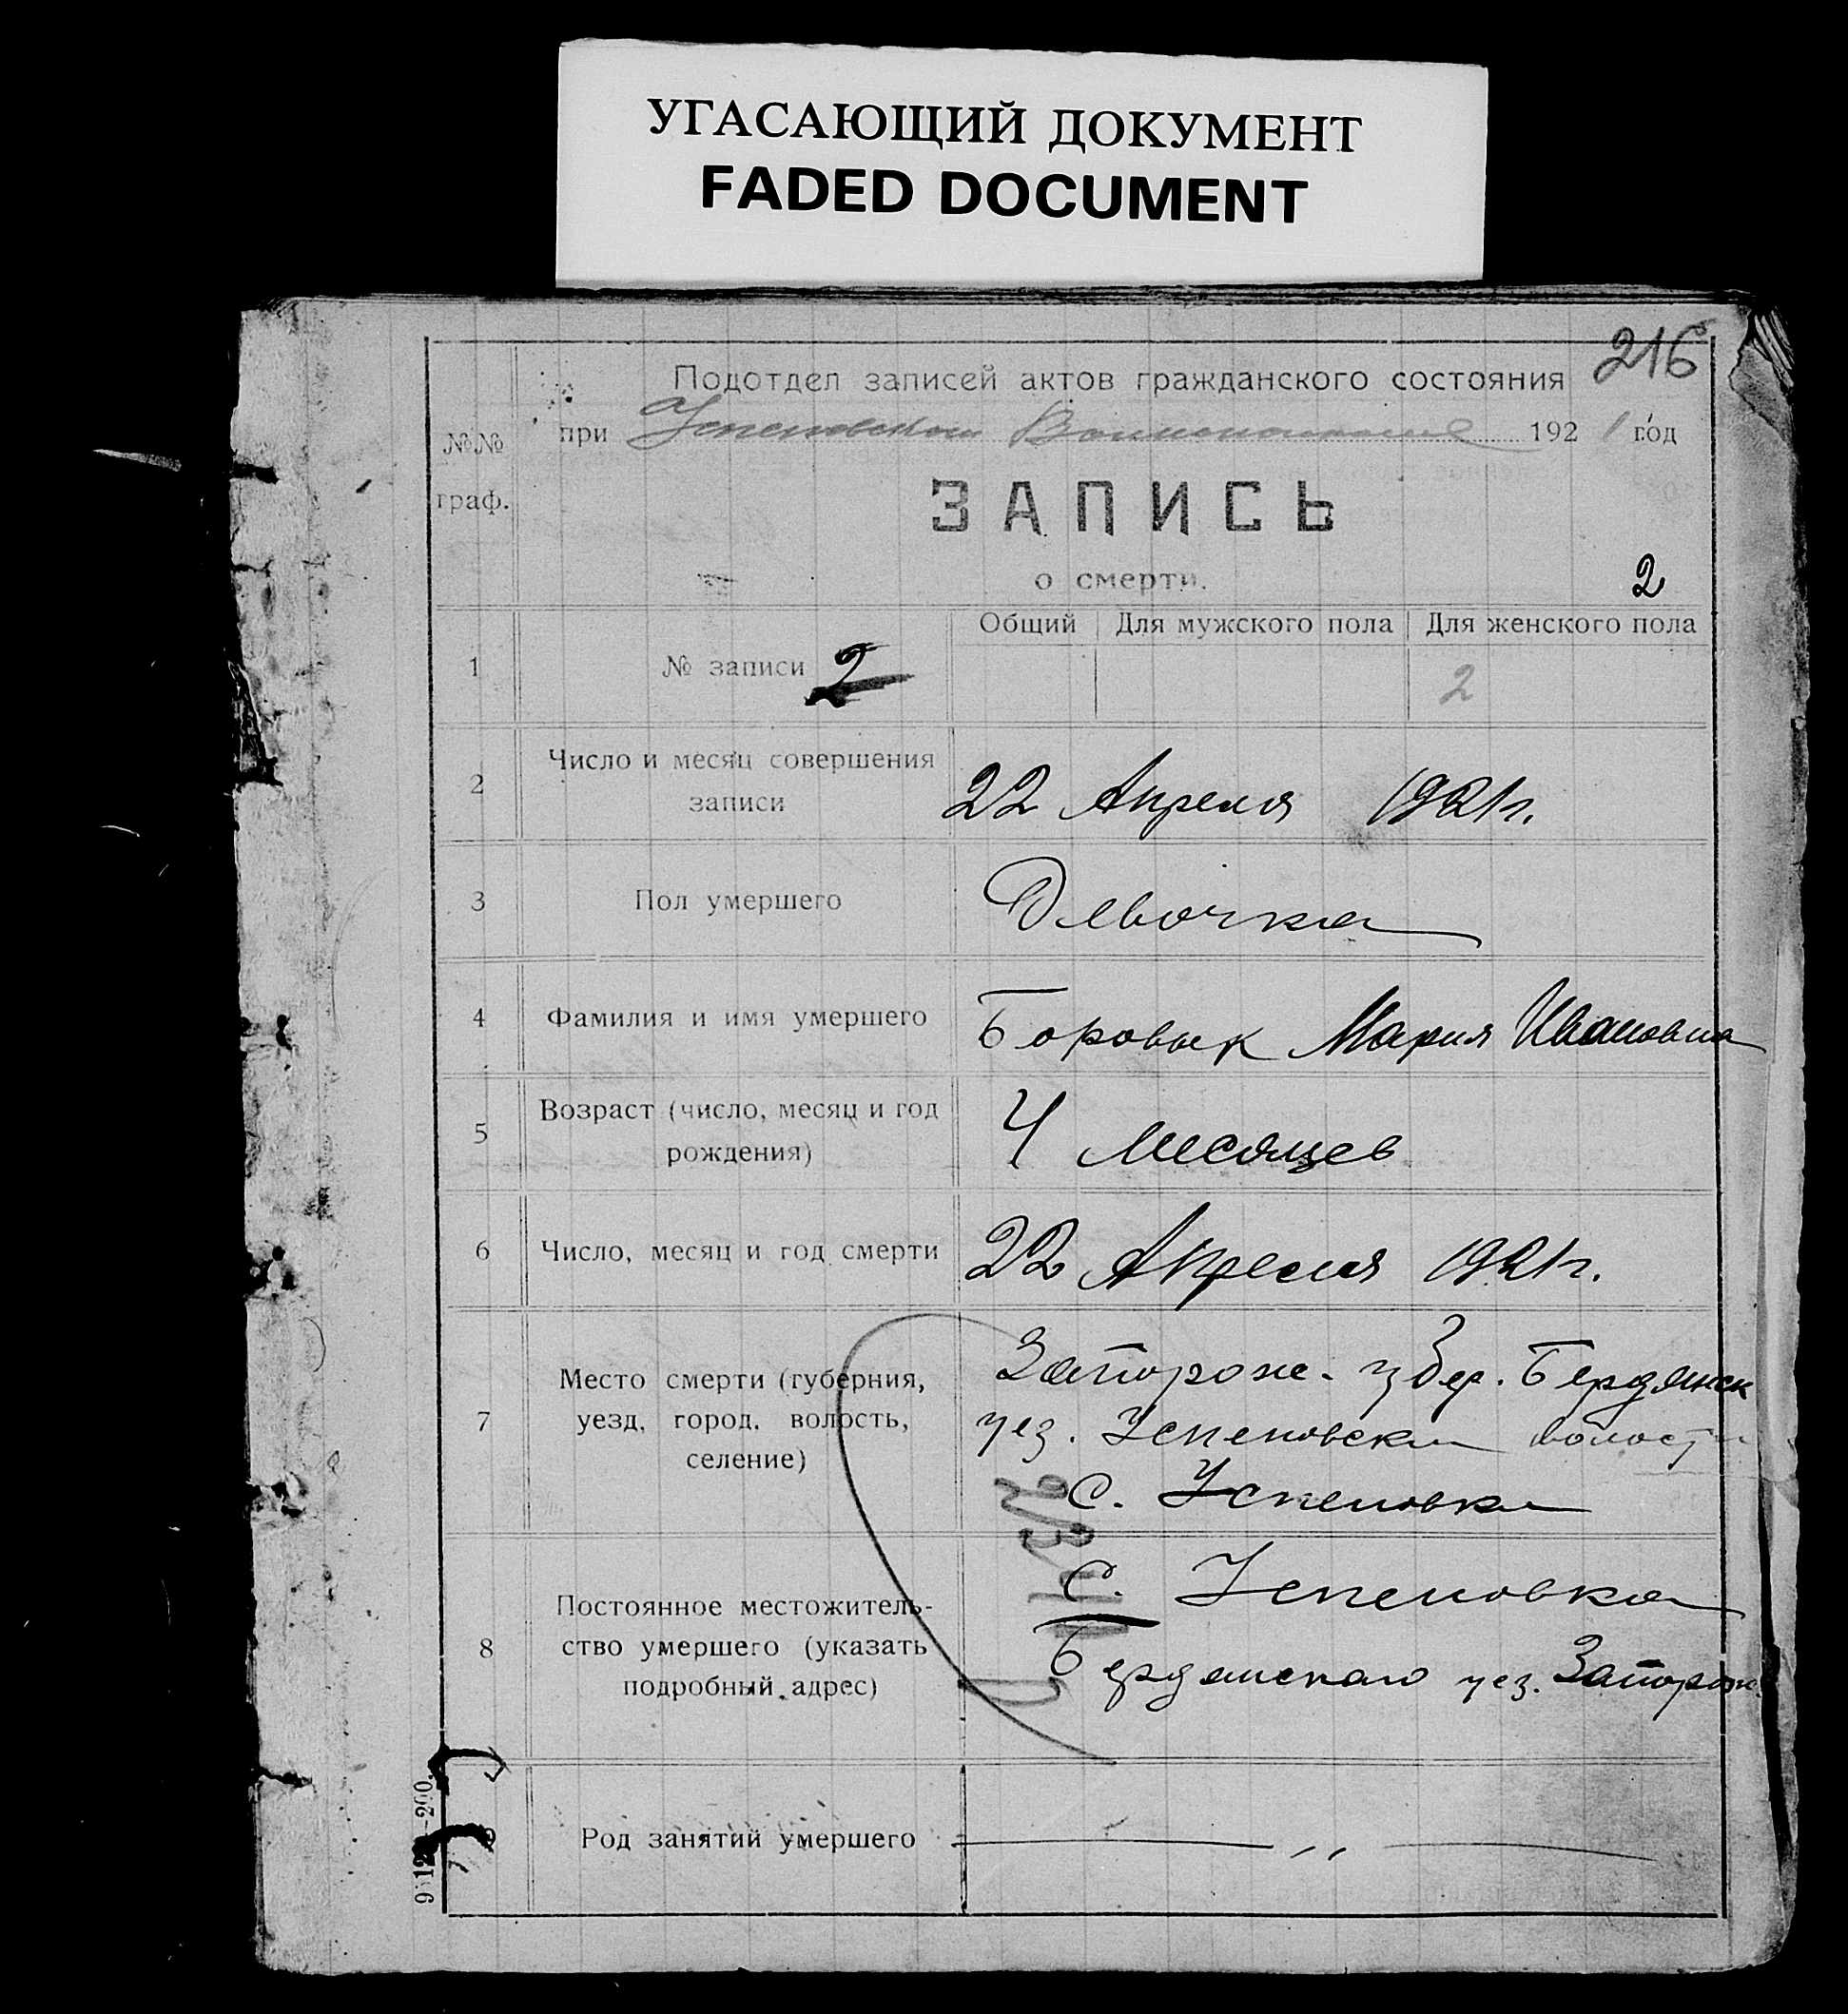 УГАСАЮЩИЙ ДОКУМЕНТ
FADED DOCUMENT
216
Подотдел записей актов гражданского состояния
при Успеновском Волисполкоме 192 1 год
№№
граф.
ЗАПИСЬ
о смерти.
2
Общий Для мужского пола Для женского пола
1 № записи 2 2
2 Число и месяц совершения
записи
22 Апреля 1921 г.
3 Пол умершего Девочка
4 Фамилия и имя умершего Боровык Мария Ивановна
5 Возраст (число, месяц и год
рождения)
4 месяцев
6 Число, месяц и год смерти 22 Апреля 1921 г.
7 Место смерти (губерния,
уезд, город, волость,
селение)
Запорож. губер. Бердянск
уез. Успеновски волости
с. Успеновки
8 Постоянное местожитель-
ство умершего (указать
подробный адрес)
с. Успеновка
Бердянскаго уез. Запорож.
9 Род занятий умершего „